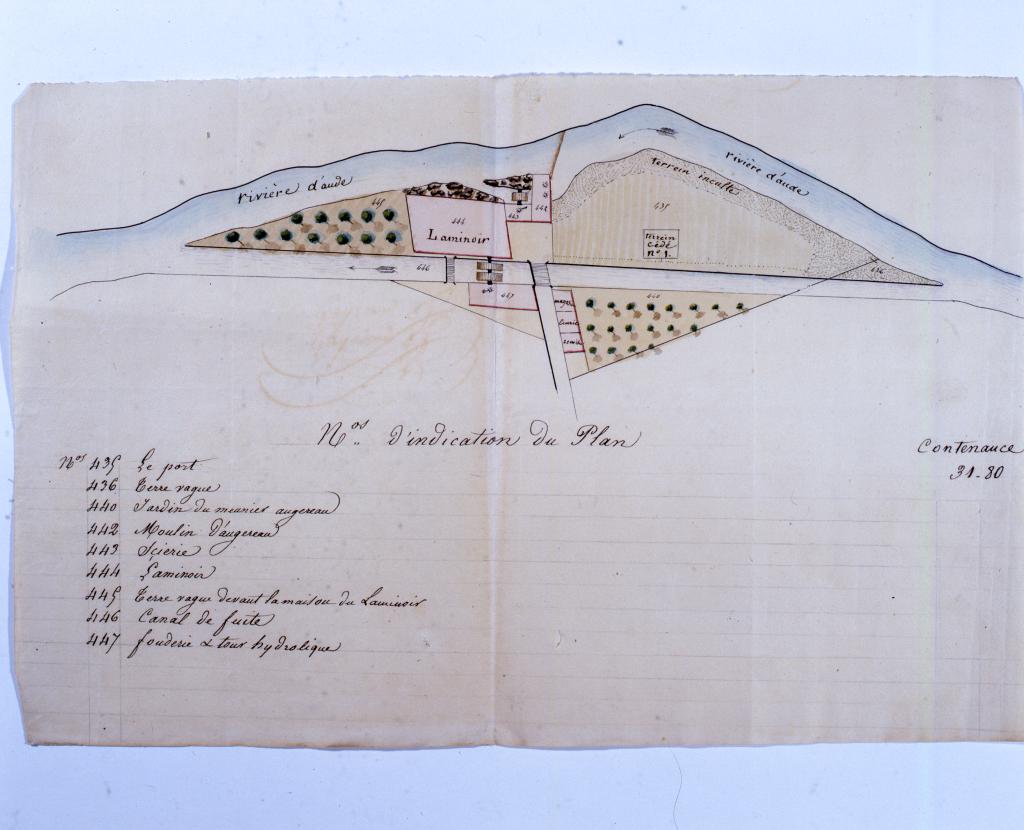 rivière d'aude
rivière d'aude
terrein inculte
445
444
Laminoir
443
442
435
terrein
Cédé
n° 1.
446
436
447
440
Nos. d'indication du Plan
Contenance
31-80
Nos 435 Le port
436 Terre vague
440 Jardin du meunier augereau
442 Moulin D'augereau
443 Scierie
444 Laminoir
445 Terre vague devant la maison du Laminoir
446 Canal de fuite
447 fonderie & tour hydrolique